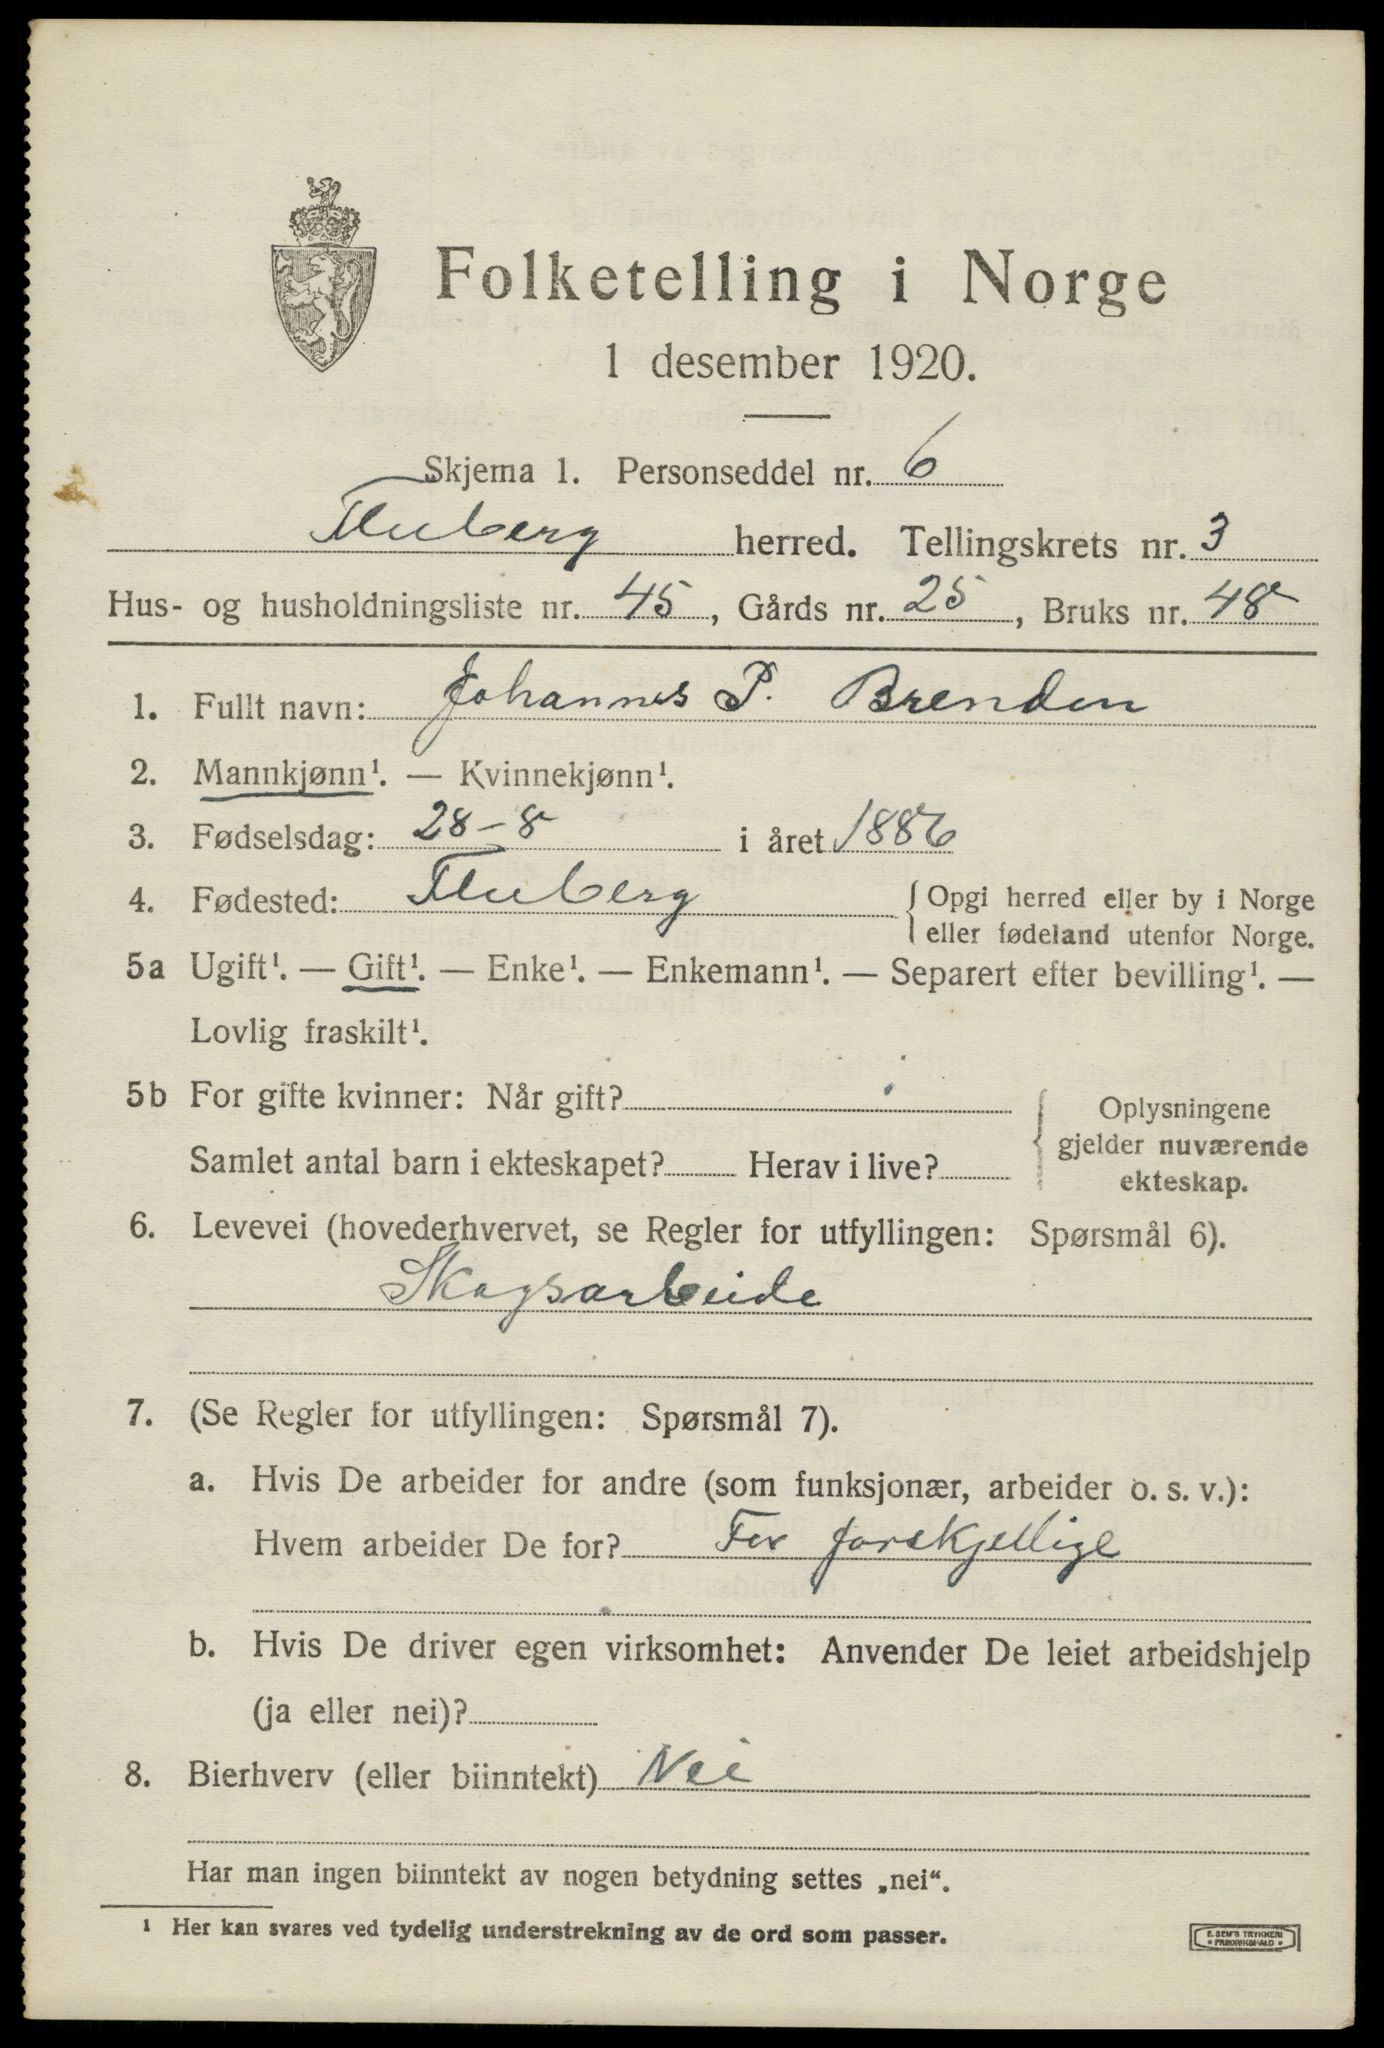 Folketelling i Norge
1 desember 1920.
Skjema 1. Personseddel nr. 6
Fluberg herred. Tellingskrets nr. 3
Hus- og husholdningsliste nr. 45, Gårds nr. 25, Bruks nr. 48
1. Fullt navn: Johannes P. Brenden
2. Mannkjønn¹. — Kvinnekjønn¹.
3. Fødselsdag: 28-8 i året 1886
4. Fødested: Fluberg { Opgi herred eller by i Norge
eller fødeland utenfor Norge.
5a Ugift¹. — Gift¹. — Enke¹. — Enkemann¹. — Separert efter bevilling¹. —
Lovlig fraskilt¹.
5b For gifte kvinner: Når gift?
Samlet antal barn i ekteskapet? Herav i live?
Oplysningene
gjelder nuværende
ekteskap.
6. Levevei (hovederhvervet, se Regler for utfyllingen: Spørsmål 6).
Skogsarbeide
7. (Se Regler for utfyllingen: Spørsmål 7).
a. Hvis De arbeider for andre (som funksjonær, arbeider o. s. v.):
Hvem arbeider De for? For forskjellige
b. Hvis De driver egen virksomhet: Anvender De leiet arbeidshjelp
(ja eller nei)?
8. Bierhverv (eller biinntekt) Nei
Har man ingen biinntekt av nogen betydning settes „nei“.
¹ Her kan svares ved tydelig understrekning av de ord som passer.
E. SEM'S TRYKKERI
• FREDRIKSHALD •